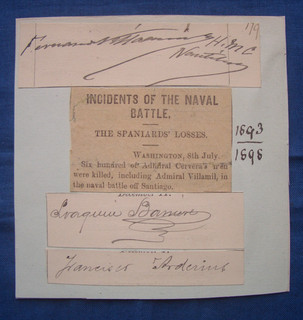 179
Fernando Villaamil
H.M.C
Nautilus
INCIDENTS OF THE NAVAL
BATTLE.
THE SPANIARDS' LOSSES.
WASHINGTON, 8th July.
Six hundred of Admiral Cervera's men
were killed, including Admiral Villamil, in
the naval battle off Santiago.
1893
1898
Joaquin Barriere
Francisco Arderius